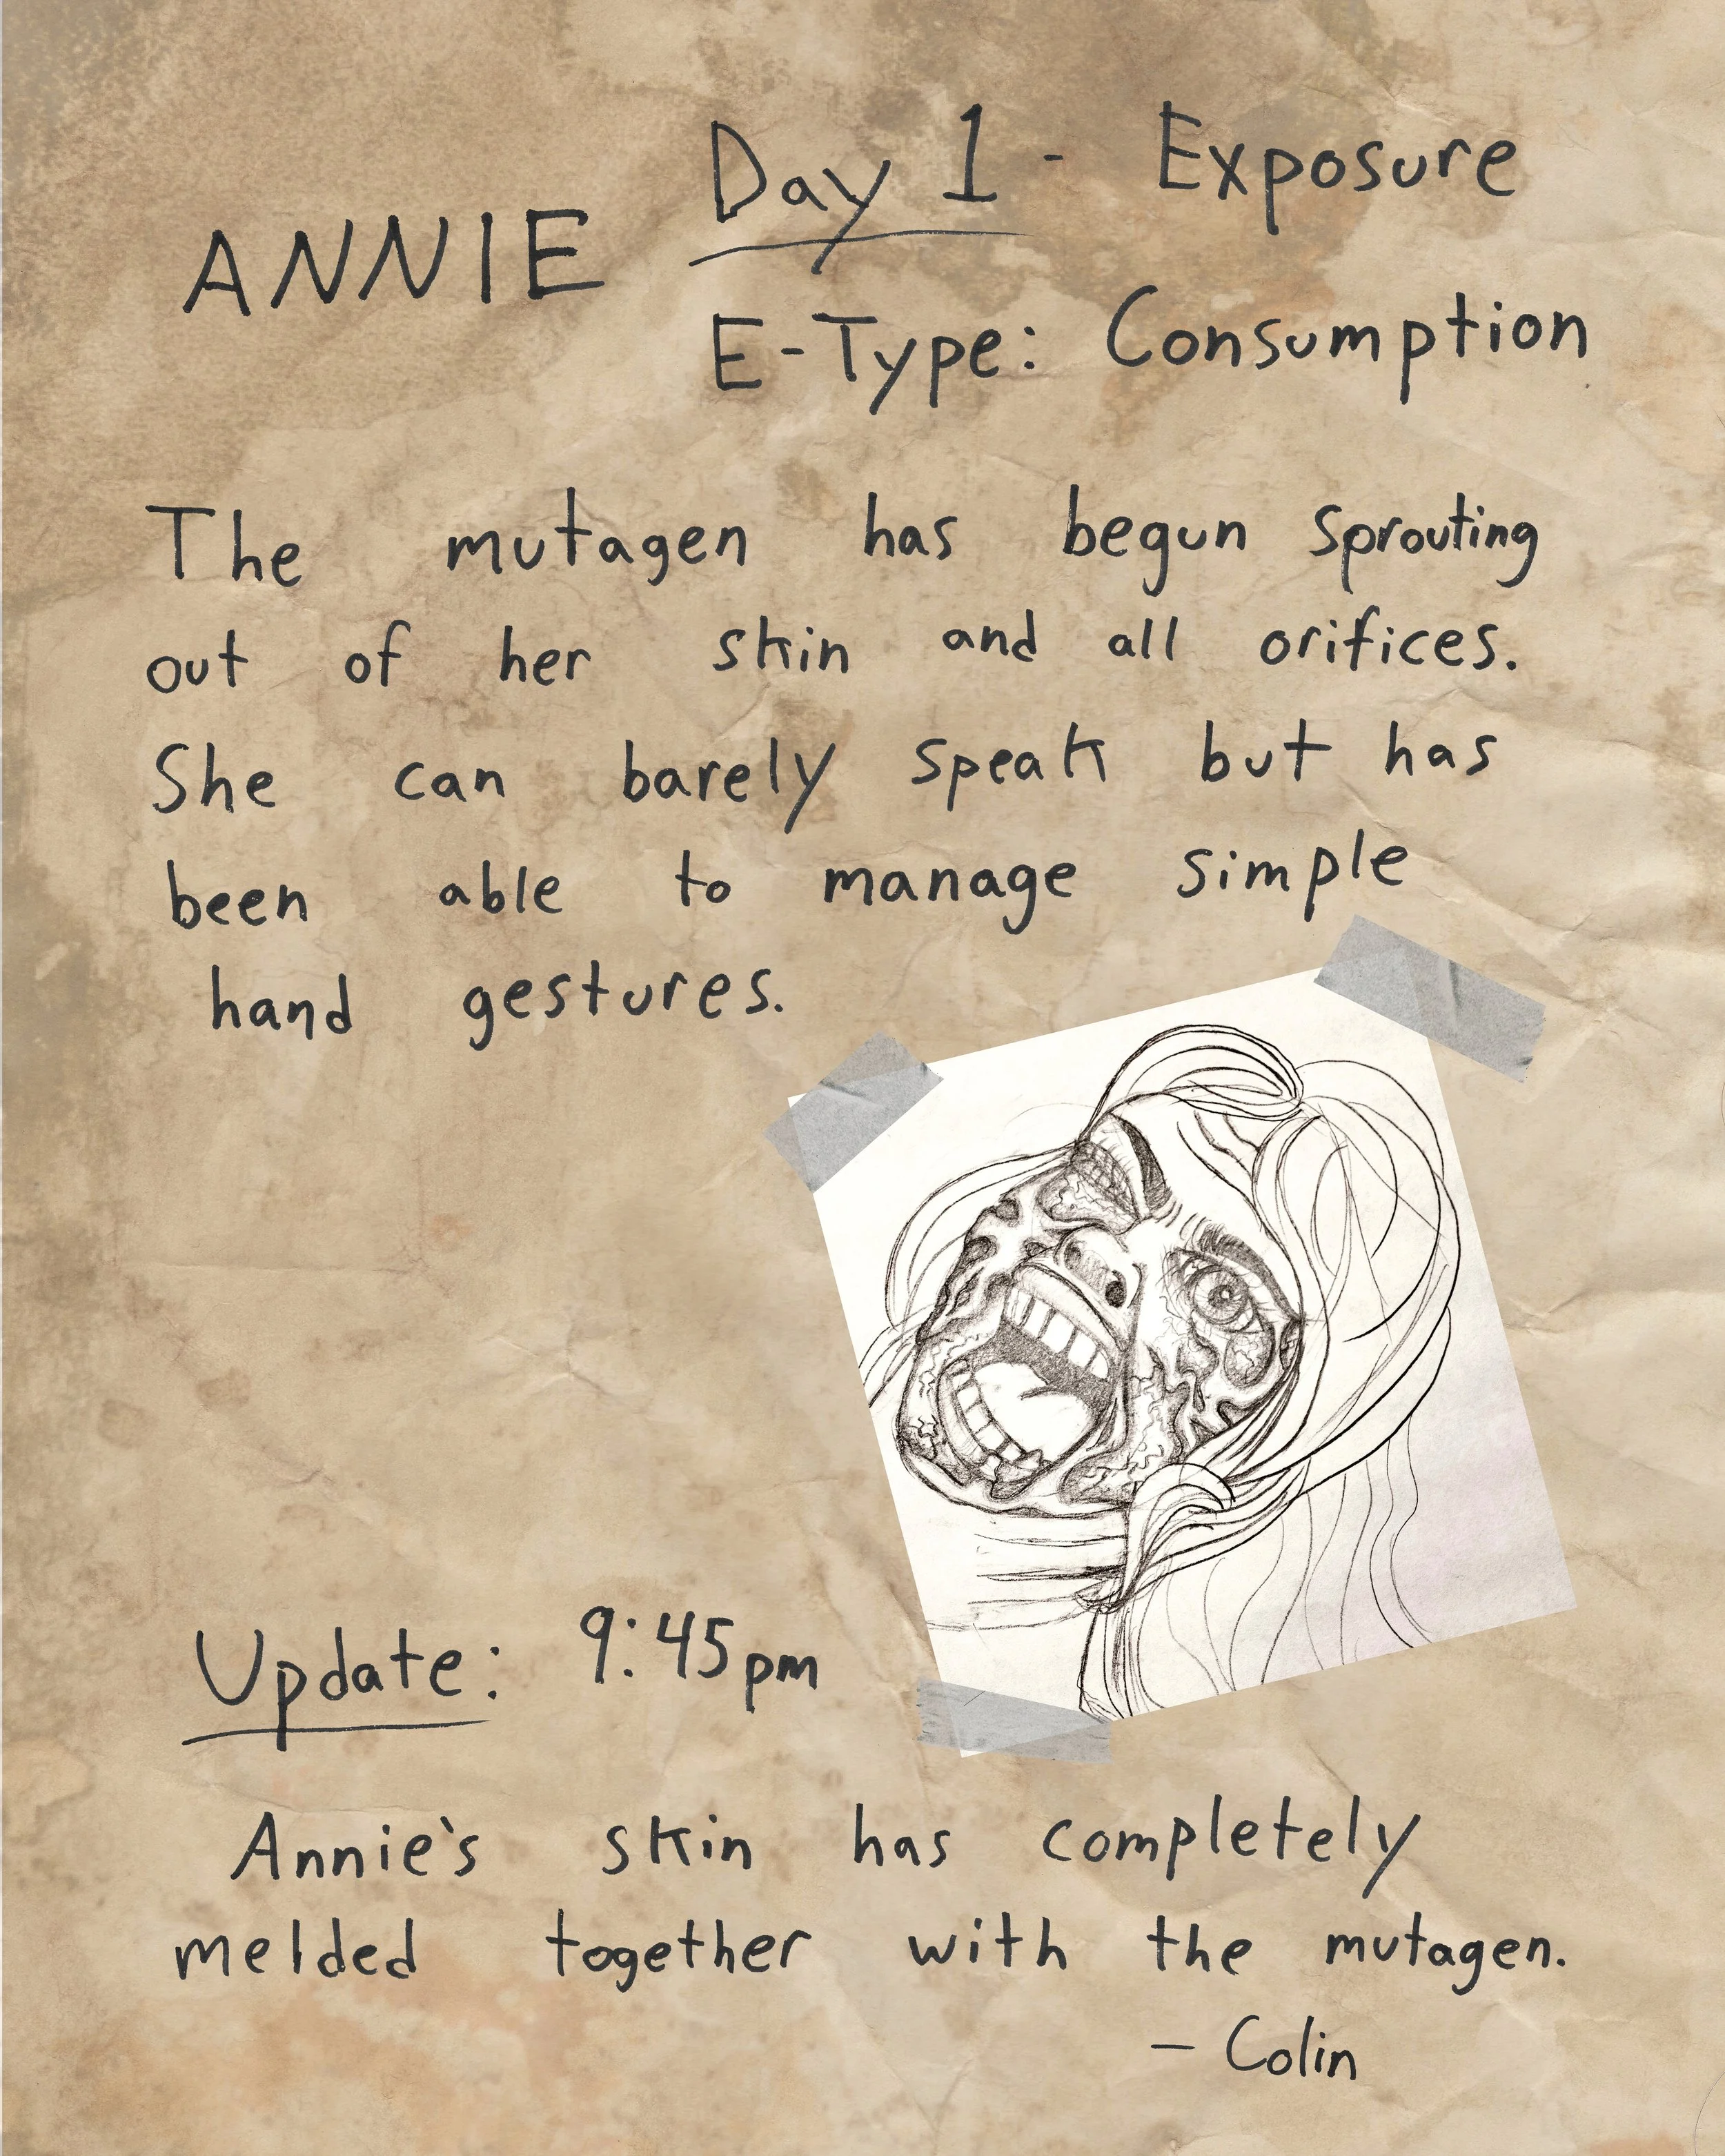 ANNIE
Day 1 - Exposure
E-Type: Consumption
The mutagen has begun sprouting
out of her skin and all orifices.
She can barely speak but has
been able to manage simple
hand gestures.
Update: 9:45pm
Annie's skin has completely
melded together with the mutagen.
- Colin